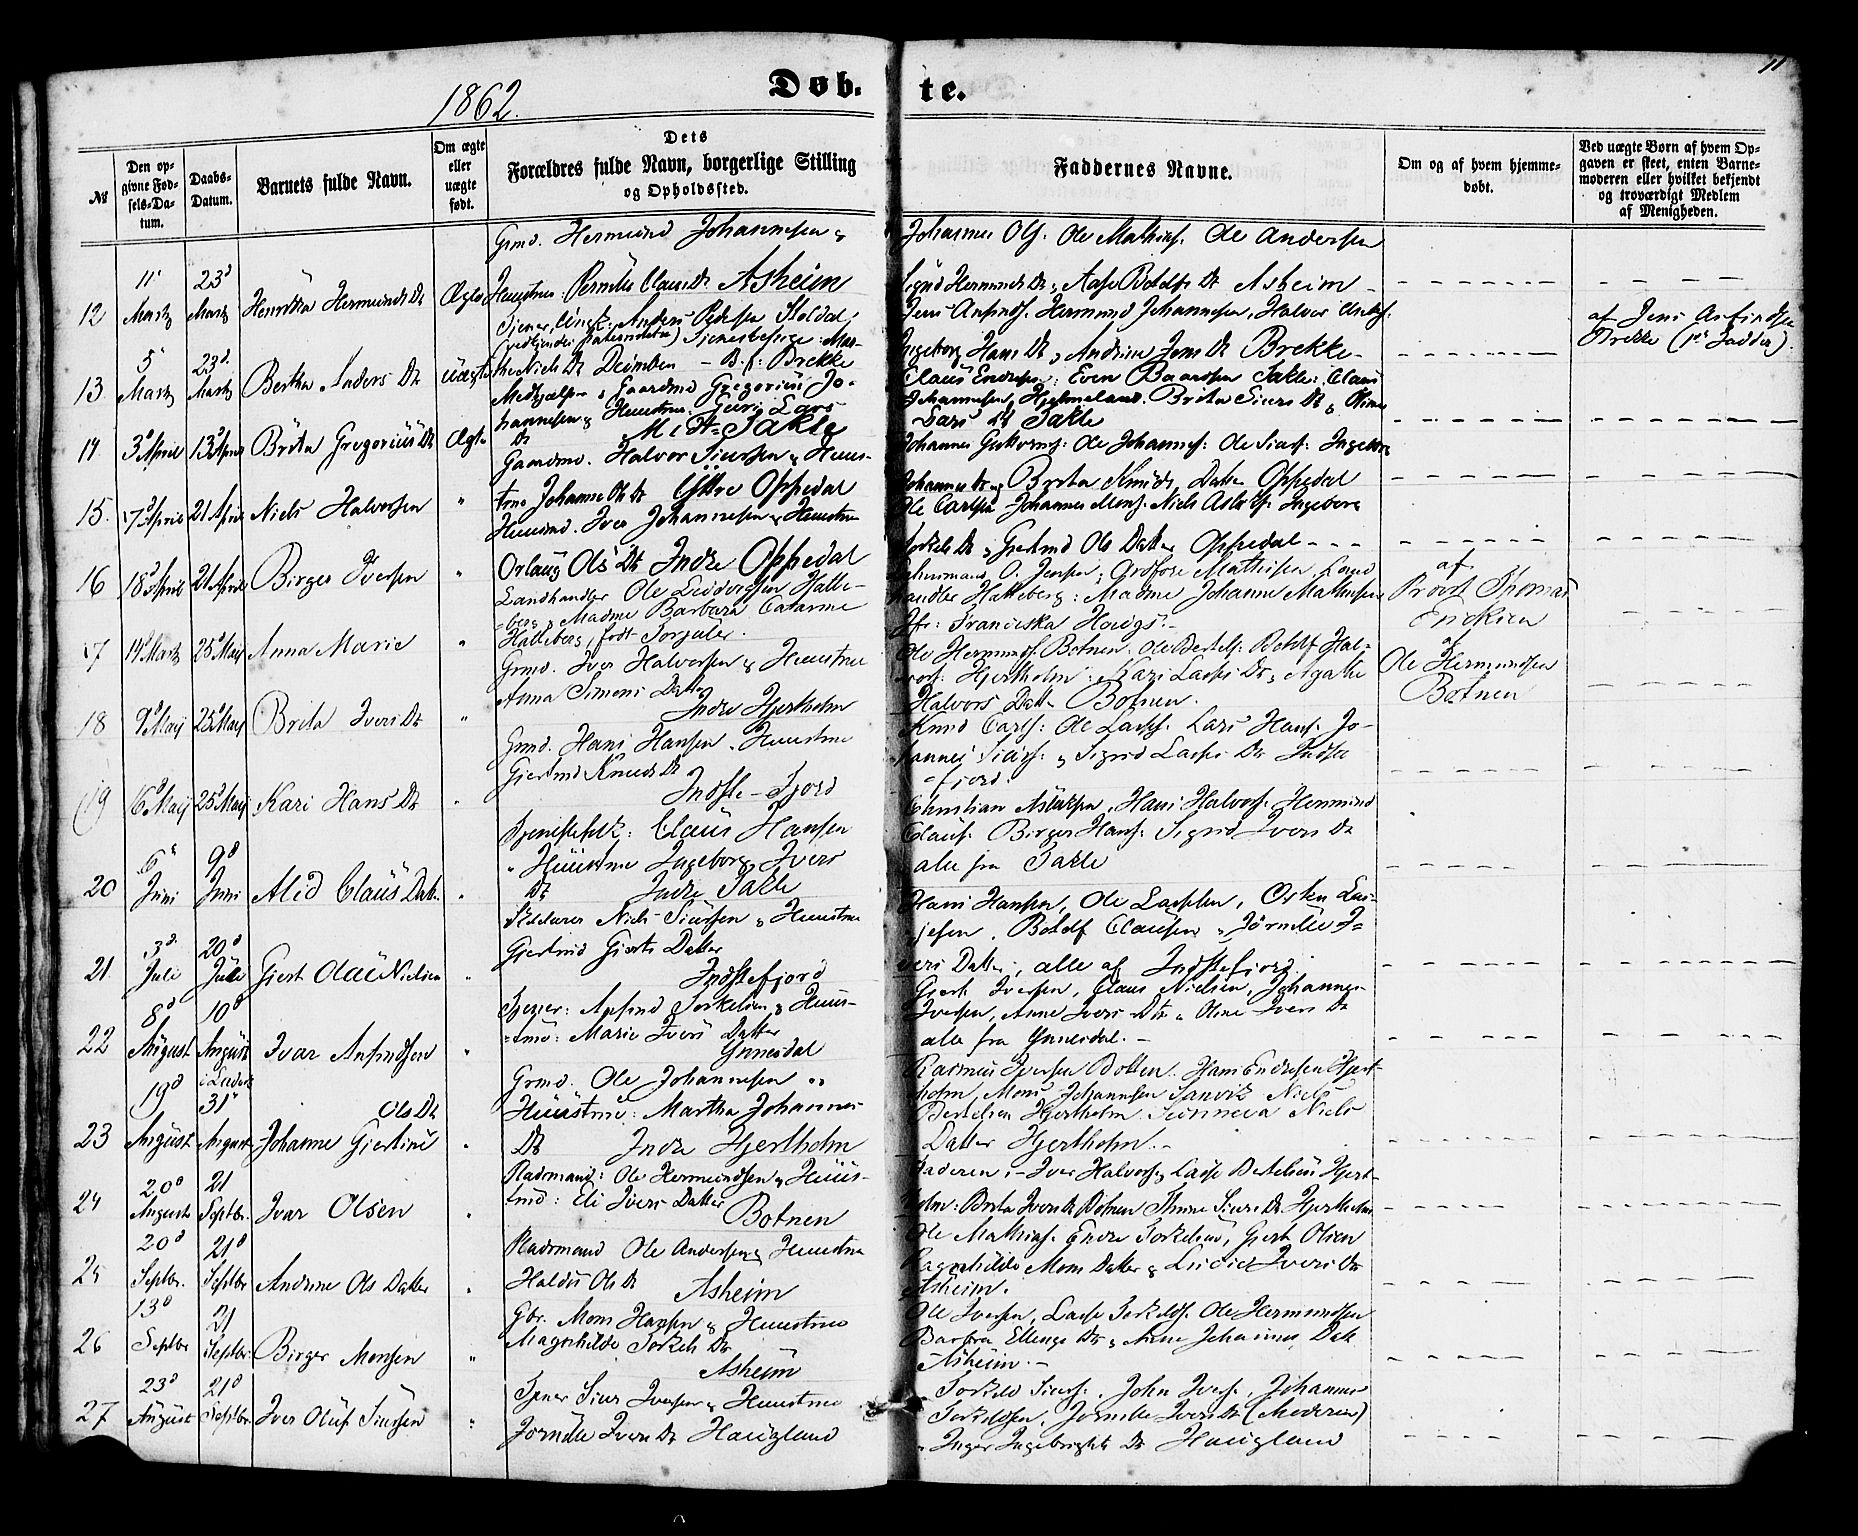 11
1862.
Døb-
te.
№
Den op-
givne Fød-
sels-Da-
tum.
Daabs-
Datum.
Barnets fulde Navn.
Om ægte
eller
uægte
født.
Dets
Forældres fulde Navn, borgerlige Stilling
og Opholdssted.
Faddernes Navne.
Om og af hvem hjemme-
døbt.
Ved uægte Børn af hvem Op-
gaven er skeet, enten Barne-
moderen eller hvilket bekjendt
og troværdigt Medlem
af Menigheden.
12
11
Marts
23d
Marts
Henrikka Hermunds Dt
Ægte
Grmd. Hermund Johannesen &
Huustrue Pernille Claus Dt Asheim
Johannes Ols. Ole Mathias. Ole Andersen
Sigrid Hermunds Dt, Aase Botolfs Dt Asheim
13
5
Marts
23d
Marts
Bertha Anders Dt
Uægte
Tjener, Ungk: Anders Pedersen Stoldal
Niels Dt - B.f: Brekke
Jens Anfinds. Hermund Johannesen, Halvor
Ingeborg Hans Dt, Andrine Jens Dt Brekke
af Jens Anfindsen
Brekke (1ste Fadder).
14
3d April
13d April
Brita Gregorius Dt
Ægte
Medhjælper, Gaardmd Gregorius Jo-
hannesen & Huustrue. Guri Lars
Dt Midt-Takle
Claus Endresen, Even Baardsen Takle, Claus
Johannesen, Hjelmeland. Brita Siurs Dt, Oline
Lars Dt Takle
15.
7d April
21 April
Niels Halvorsen
"
Gaardmd. Halvor Siursen & Huus-
true Johanne Ols Dt Yttre Oppedal
Johannes Guttorms: Ole Johannes: Ole Siurs: Ingeborg
Johannes Dt & Brita Knuds Datter Oppedal
16
18d April
21 April
Birger Iversen
"
Huusmd. Iver Johannesen & Huustrue
Orlaug Ols Dt Indre Oppedal
Ole Carlsen Johannes Mons. Niels Ingeborg
Torkels Dt, Gjertrud Ols Datter Oppedal
17
14 Marts
25d Maij
Anna Marie
"
Landhandler Ole Liddvorsen Halle-
berg, Madme Barbara Catarine
Halleberg, født
O. Jensen, Mathisen, Land
handler Halleberg: Madme Johanne Mathisen
Jfr: Franciska Haugs
af
Provst Thomas
Erichsen
18
9d Maij
25d Maij
Brita Ivers Dt
"
Grmd. Iver Halvorsen & Huustrue
Anna Simons Datter
Indre Hjertholm
Ole Hermunds Botnen. Ole Bertels. Botolf Hal-
vors. Hjertholm: Kari Lasses Dt, Agathe
Halvors Datter Botnen.
af
Ole Hermundsen
Botnen
19
16d Maij
25d Maij
Kari Hans Dt
"
Grmd. Hans Hansen, Huustrue
Gjertrud Knuds Dt
Indste-Fjord
Knud Carls: Ole Lasses. Lars Hans. Jo-
hannes Siurs. & Sigrid Lasses Dt Indste
fjord.
20
6te
Juni
9d
Juni
Alid Claus Datt.
"
Tjenestefolk: Claus Hansen
Huustrue Ingeborg Ivers
Dt Indre Takle
Christian Aslaksen, Hans Halvors. Hermund
Claus. Birger Hans. Sigrid Ivers Dt
alle fra Takle
21
3d
Juli
20d
Juli
Gjert Olai Nielsen
"
Niels Siursen & Huustrue
Gjertrud Gjerts Datter
Indstefjord
Hans Hansen, Ole Lassesen, Osten Las-
sesen. Botolf Clausen, Jørnille I-
vers Datter, alle af Indstefjord.
22
8d
August
10d
August
Ivar Anfindsen
"
Tjener: Anfind Torkelsen & Huus-
true: Marie Ivers Datter
Ynnesdal
Gjert Iversen, Claus Nielsen, Johannes
Iversen, Anne Ivers Dtr & Oline Ivers Dt
alle fra Ynnesdal.
23
19d
August
31te
August
Johanne Gjertine
Ols Dt
"
Grmd. Ole Johannesen &
Huustrue: Martha Johannes
Dt Indre Hjertholm
Rasmus Iversen Botten. Hans Endresen Hjert-
holm, Mons Johannsen Sanvik Niels
Bertelsen Hjertholm. Sünneva Niels
Datter Hjertholm.
24
20d
August
21
Septbr.
Ivar Olsen
"
Pladsmand: Ole Hermundsen & Huus-
true: Eli Ivers Datter
Botnen
Faderen: Iver Halvors, Lasse Bertelsen Hjert-
holm: Brita Ivers Dt Botnen Siurs Dt Hjertholm
25
20d
Septbr.
21d
Septbr
Andrine Ols Datter
"
Pladsmand Ole Andersen & Huustrue
Haldis Ols Dt Asheim
Ole Mathias. Endre Torkelsen, Gjert Olsen
Ragnhilde Mons Datter & Ivers Dt
Asheim.
26
13d
Septbr
21
Septbr.
Birger Monsen
"
Gbr. Mons Hansen & Huustrue
Magnhilde Torkels Dt
Asheim
Ole Iversen, Lasse Torkelds. Ole Hermundsen
Barbra Ellings Dt, Anne Johannes Datt
Asheim.
27
23d
August
21d
Septbr
Iver Oluf Siursen
"
Tjener Siur Iversen & Huustrue
Jørnille Ivers Dt Haugland
Torkild Siurs. John Ivers. Johannes
Torkildsen, Jørnille Ivers Dt (Moderen)
Inger Ingebrigts Dt Haugland